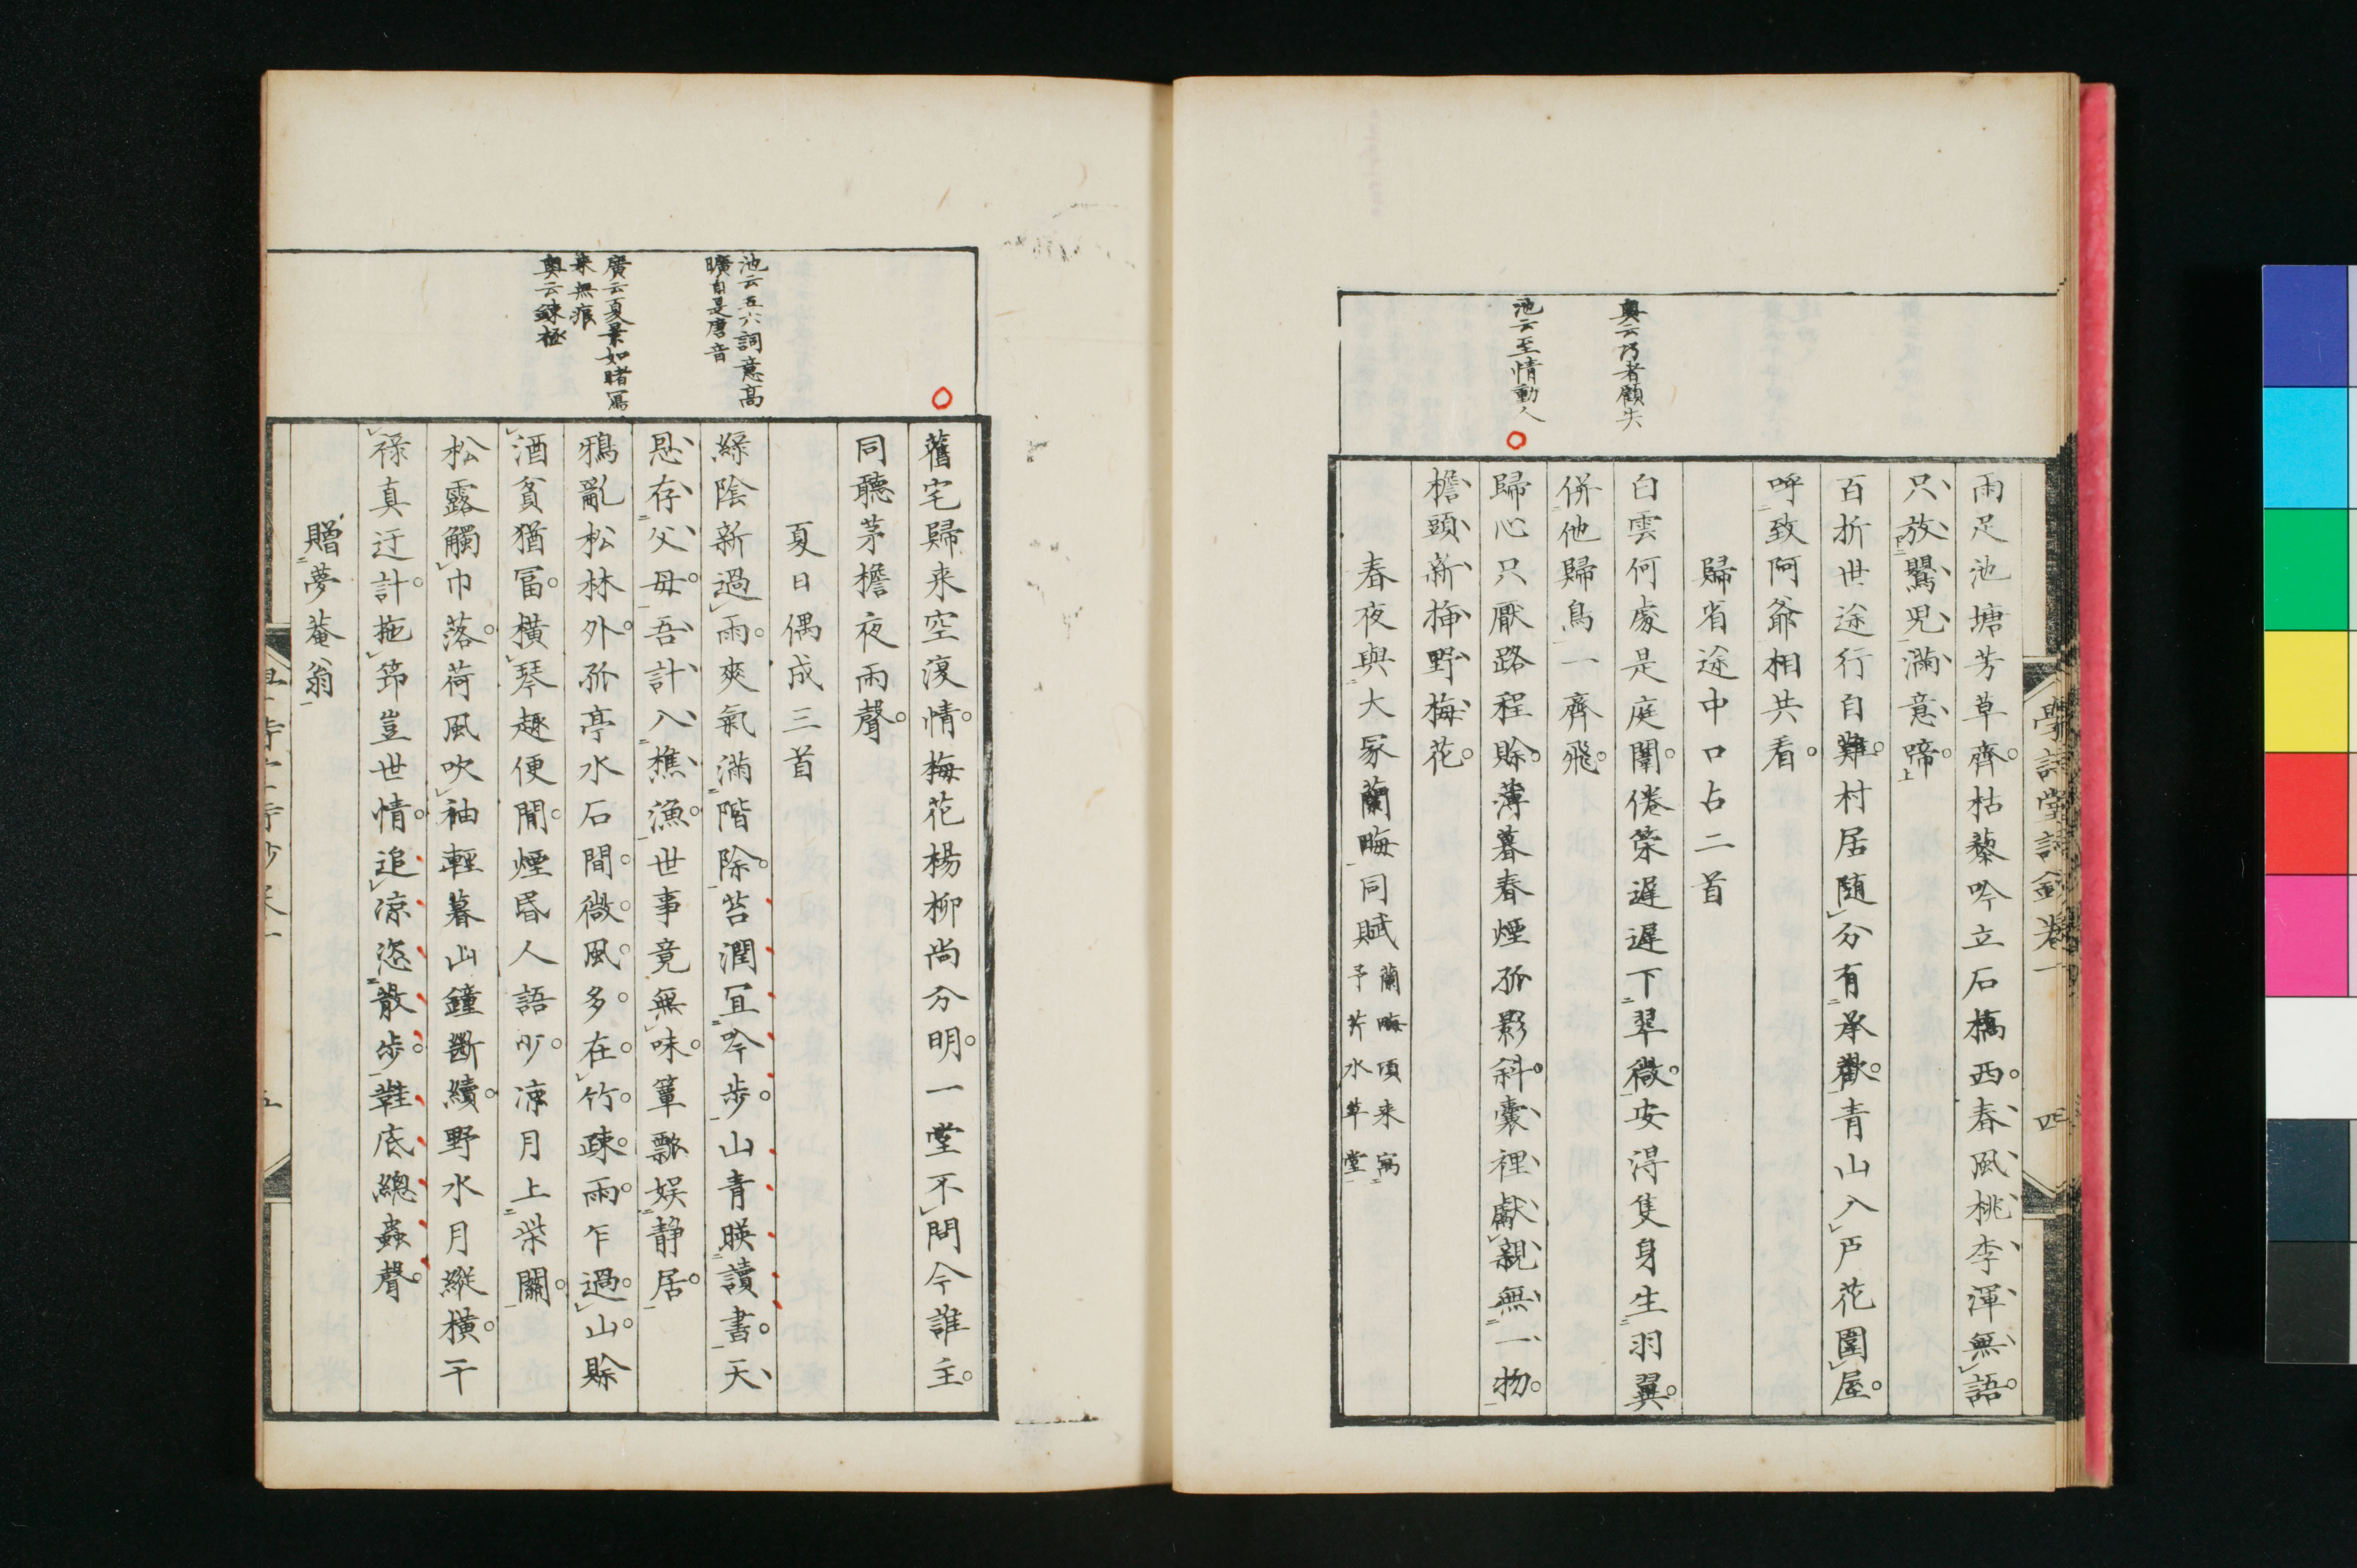 雨足池塘芳草齊枯藜吟立石橋西春風桃李渾無語
只放鸎兒滿意啼
百折世途行自難村居随分有承歡青山入戸花圍屋
呼致阿爺相共看
歸省途中口占二首
白雲何處是庭闈倦策遲遲下翠微安得隻身生羽翼
併他歸鳥一齊飛
歸心只厭路程賒薄暮春煙孤影斜囊裡獻親無一物
檐頭新挿野梅花
春夜與大冢蘭畮同賦
蘭畮頃来寓
予芥水草堂
奥云巧者顧失
池云至情動人
四
舊宅歸来空復情梅花楊柳尚分明一堂不問今誰主
同聽茅檐夜雨聲
夏日偶成三首
綠陰新過雨爽氣滿階除苔潤宜吟步山青暎讀書天
恩存父母吾計入樵漁世事竟無味簞瓢娯静居
鴉亂松林外孤亭水石間微風多在竹疎雨乍過山賒
酒貧猶冨橫琴趣便閒煙昏人語少凉月上柴關
松露觸巾落荷風吹袖輕暮山鐘斷續野水月縱橫干
祿真迂計拖笻豈世情追凉恣散歩鞋底總蟲聲
贈夢菴翁
池云五六詞意高
曠自是唐音
廣云夏景如睹冩
来無痕
奥云鍊極